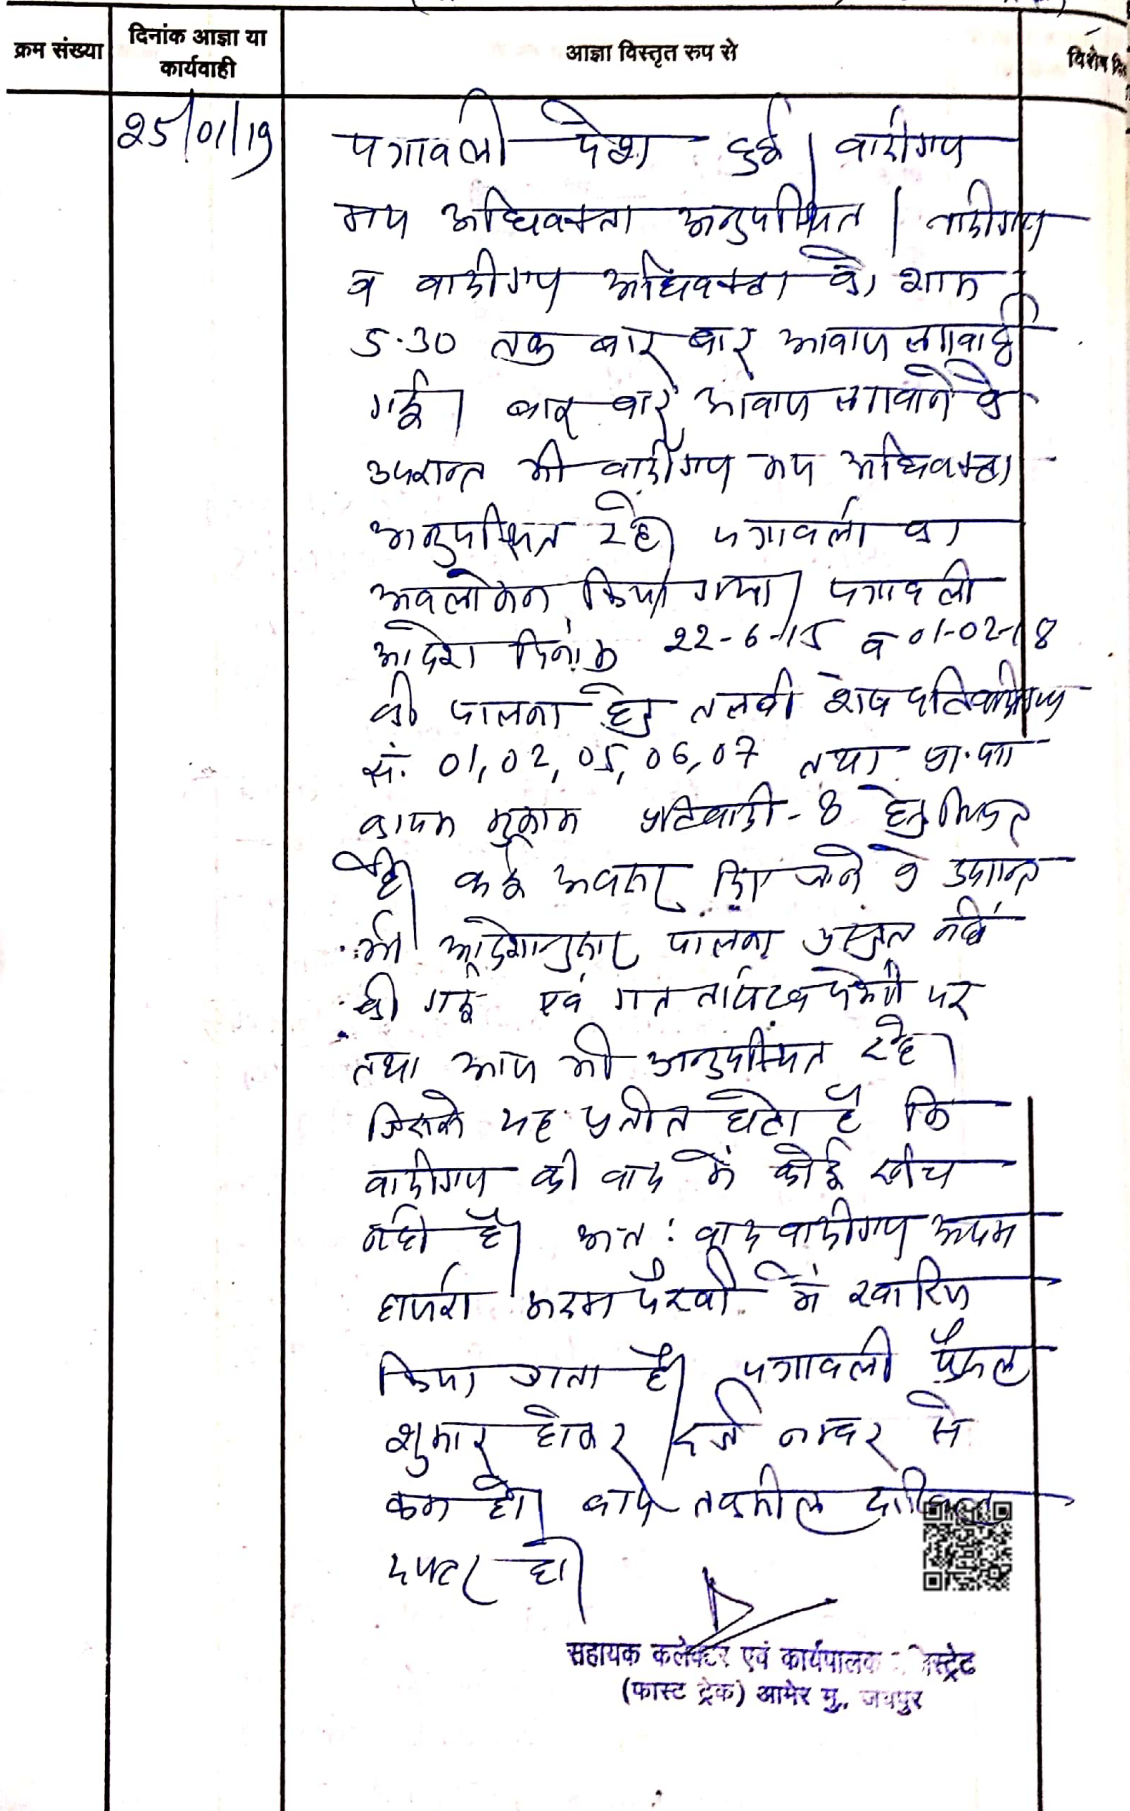 क्रम संख्या
दिनांक आज्ञा या
कार्यवाही
आज्ञा विस्तृत रुप से
विशेष
25/01/19
पत्रावली पेश हुई। वादीगण
मय अधिवक्ता अनुपस्थित। वादीगण
व वादीगण अधिवक्ता को शाम
5.30 तक बार बार आवाज लगवाई
गई। बार बार आवाज लगवाने के
उपरान्त भी वादीगण मय अधिवक्ता
अनुपस्थित रहे। पत्रावली का
अवलोकन किया गया। पत्रावली
आदेश दिनांक 22-6-15 व 01-02-18
की पालना हेतु तलबी शेष प्रतिवादीगण
सं. 01, 02, 05, 06, 07 तथा प्रा.पत्र
कायम मुकाम प्रतिवादी-8 हेतु नियत
है। कई अवसर दिए जाने के उपरान्त
भी आदेशानुसार पालना प्रस्तुत नहीं
की गई एवं गत तारीख पेशी पर
तथा आज भी अनुपस्थित रहे।
जिससे यह प्रतीत होता है कि
वादीगण की वाद में कोई रूचि
नहीं है। अत: वाद वादीगण अदम
हाजरी अदम पैरवी में खारिज
किया जाता है। पत्रावली फैसल
शुमार होकर दर्ज नम्बर से
कम हो। बाद तकमील दाखिल
दफ्तर हो।
सहायक कलेक्टर एवं कार्यपालक
(फास्ट ट्रेक) आमेर मु. जयपुर